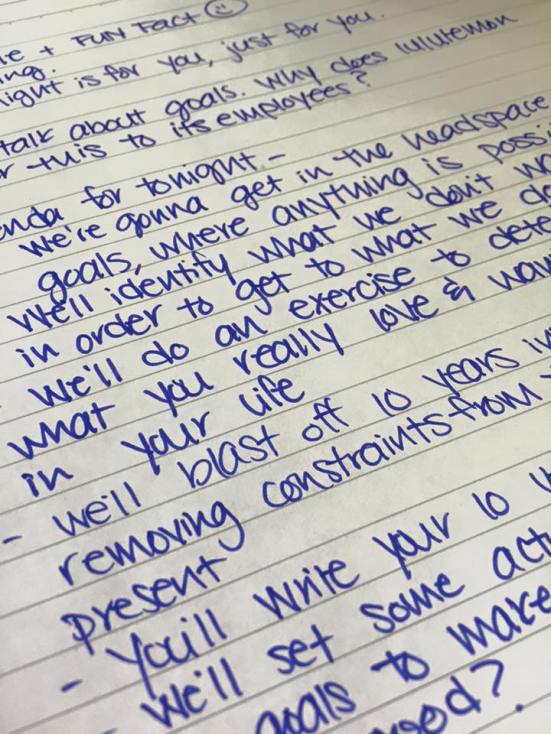 + FUN FACT
is for you, just for you.
talk about goals. Why does lululemon
this to its employees?
for tonight -
we're gonna get in the headspace
goals, where anything is
We'll identify what we don't
in order to get to what we
- we'll do an exercise to
what you really love &
in your life
- we'll blast off 10 years
removing constraints from
present
- You'll write your 10
- We'll set some
goals to make